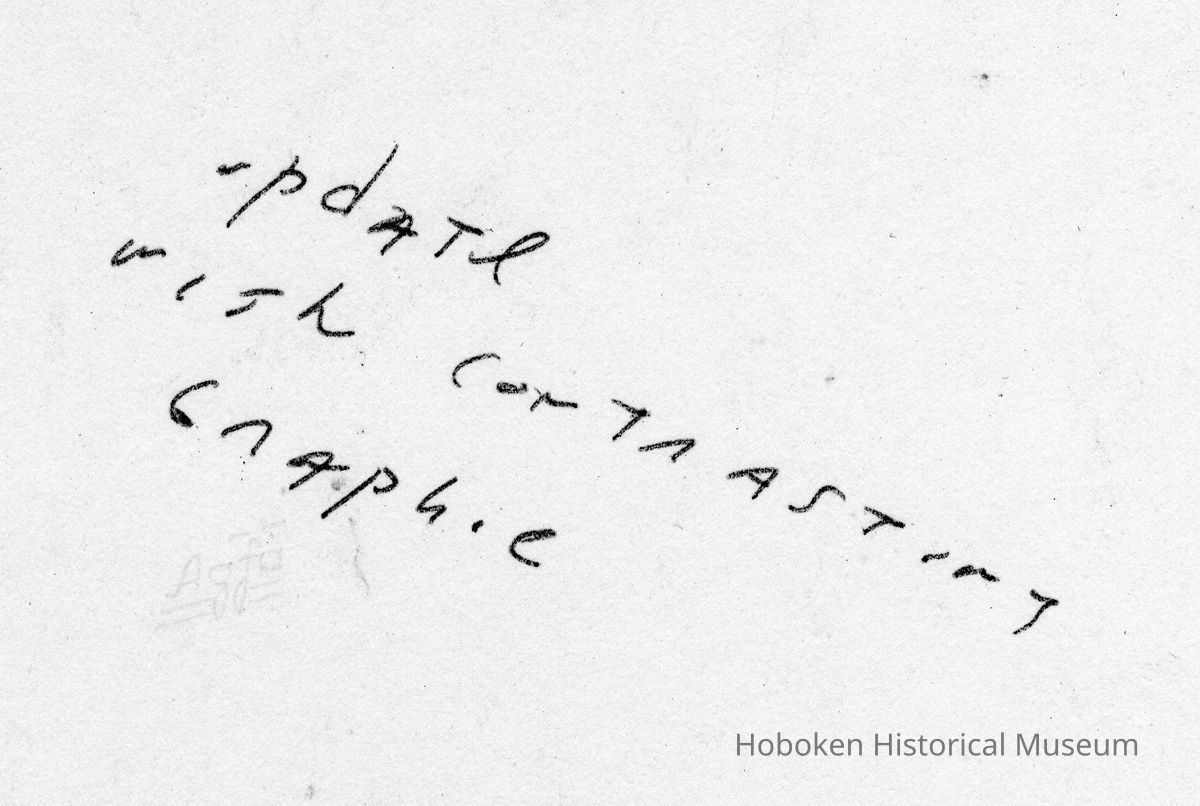 update
with contrasting
Graphic
Hoboken Historical Museum